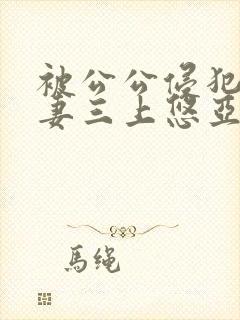 被公公侵犯
妻三上悠亞
馬绳